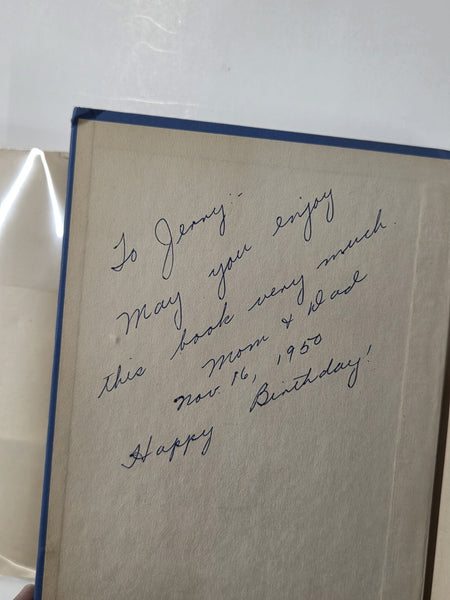 To Jerry:-
May you enjoy
this book very much.
Mom & Dad
Nov. 16, 1950
Happy Birthday!